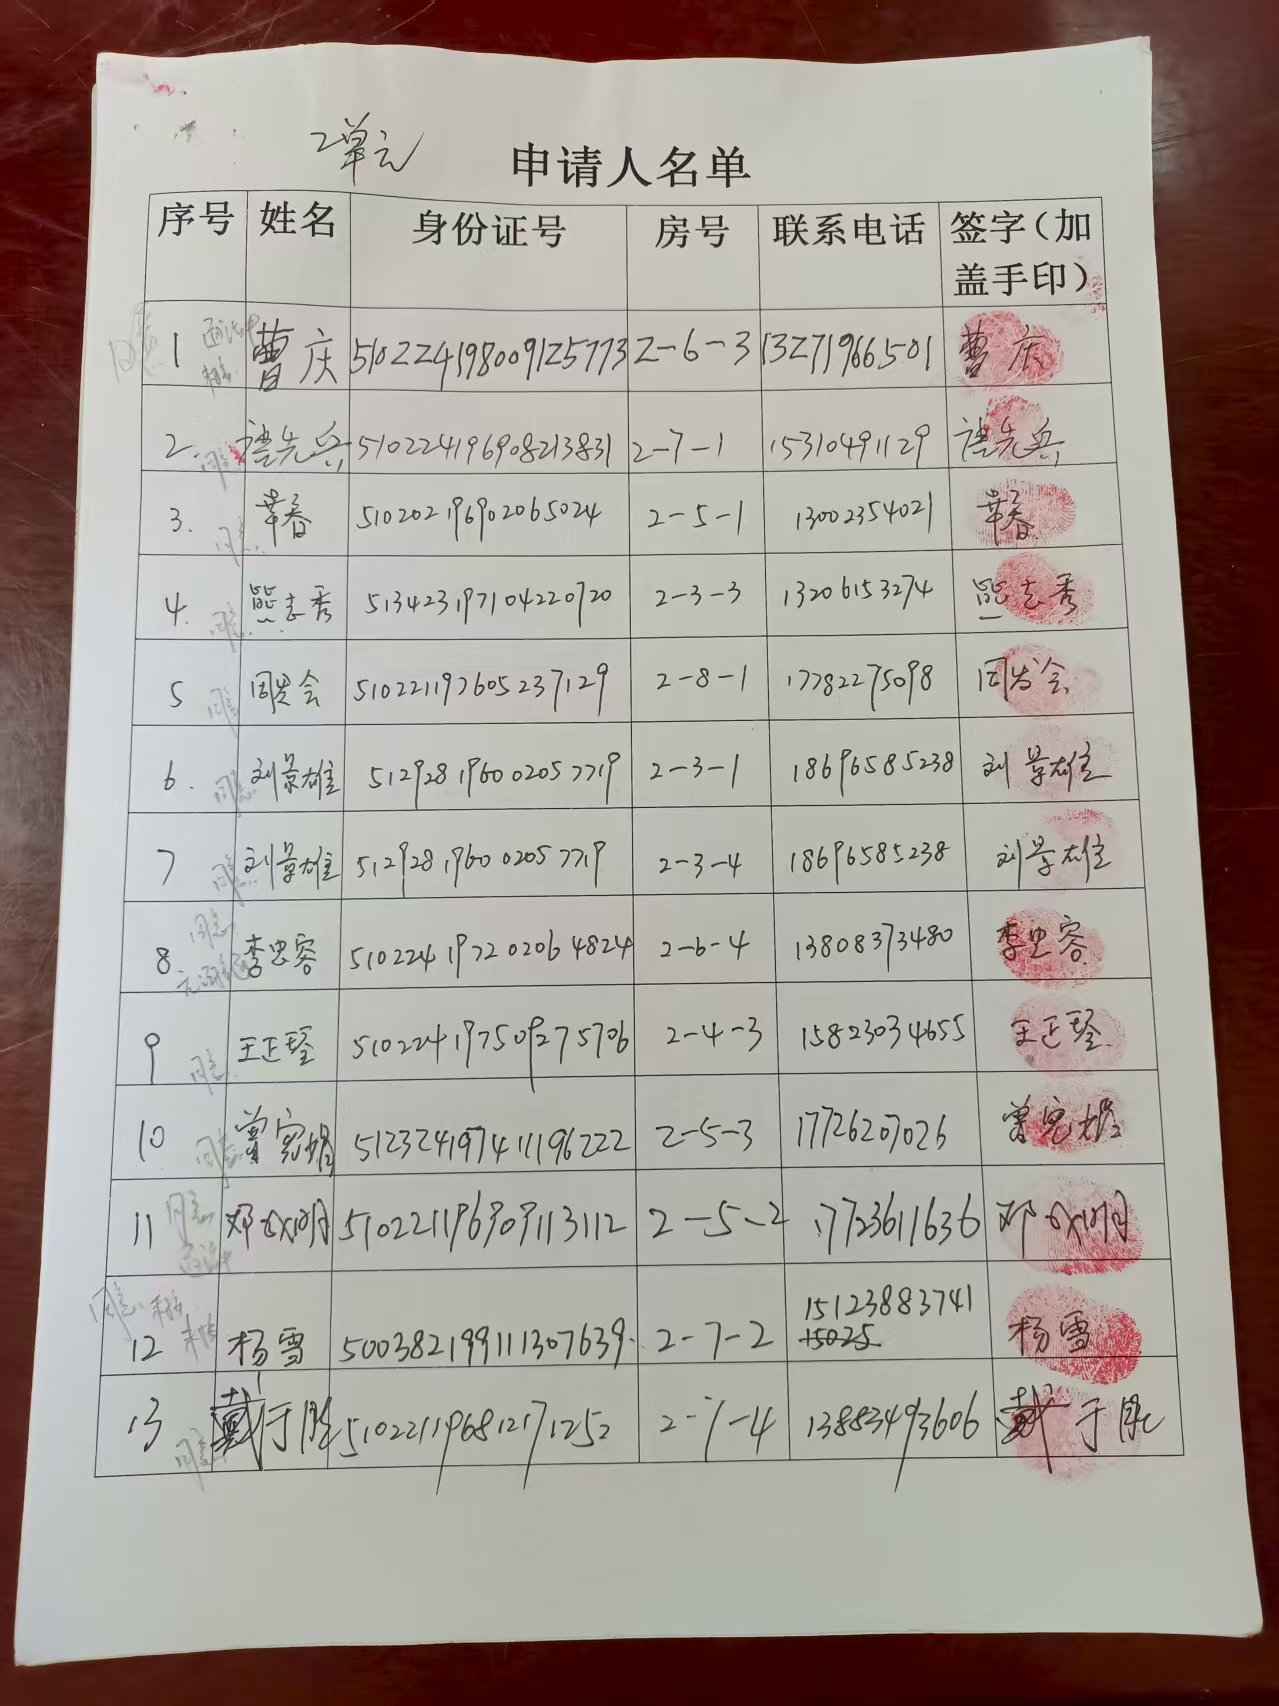 2单元
申请人名单
序号 姓名 身份证号 房号 联系电话 签字（加盖手印）
同意 1 曹庆 510224198009125773 2-6-3 13271966501 曹庆
2. 同意 先兵 510224196908213831 2-7-1 15310491129 先兵
3. 同意 春 510202196902065024 2-5-1 13002354021 春
4. 同意 熊志秀 513423197104220720 2-3-3 13206153274 熊志秀
5 同意 周发会 510221197605237129 2-8-1 17782275098 周发会
6. 同意 刘景雄 512928196002057719 2-3-1 18696585238 刘景雄
7 同意 刘景雄 512928196002057719 2-3-4 18696585238 刘景雄
8 同意 李忠容 510224197202064824 2-6-4 13808373480 李忠容
9 同意 王正 510224197509275706 2-4-3 15823034655 王正
10 同意 曾 512324197411196222 2-5-3 17726207026 曾
11 同意 邓 明 510221196909113112 2-5-2 17723611636 邓 明
同意 12 杨雪 500382199111307639. 2-7-2 15123883741 15025 杨雪
13 同意 戴于胜 510221196812171252 2-7-4 13883493606 戴于胜